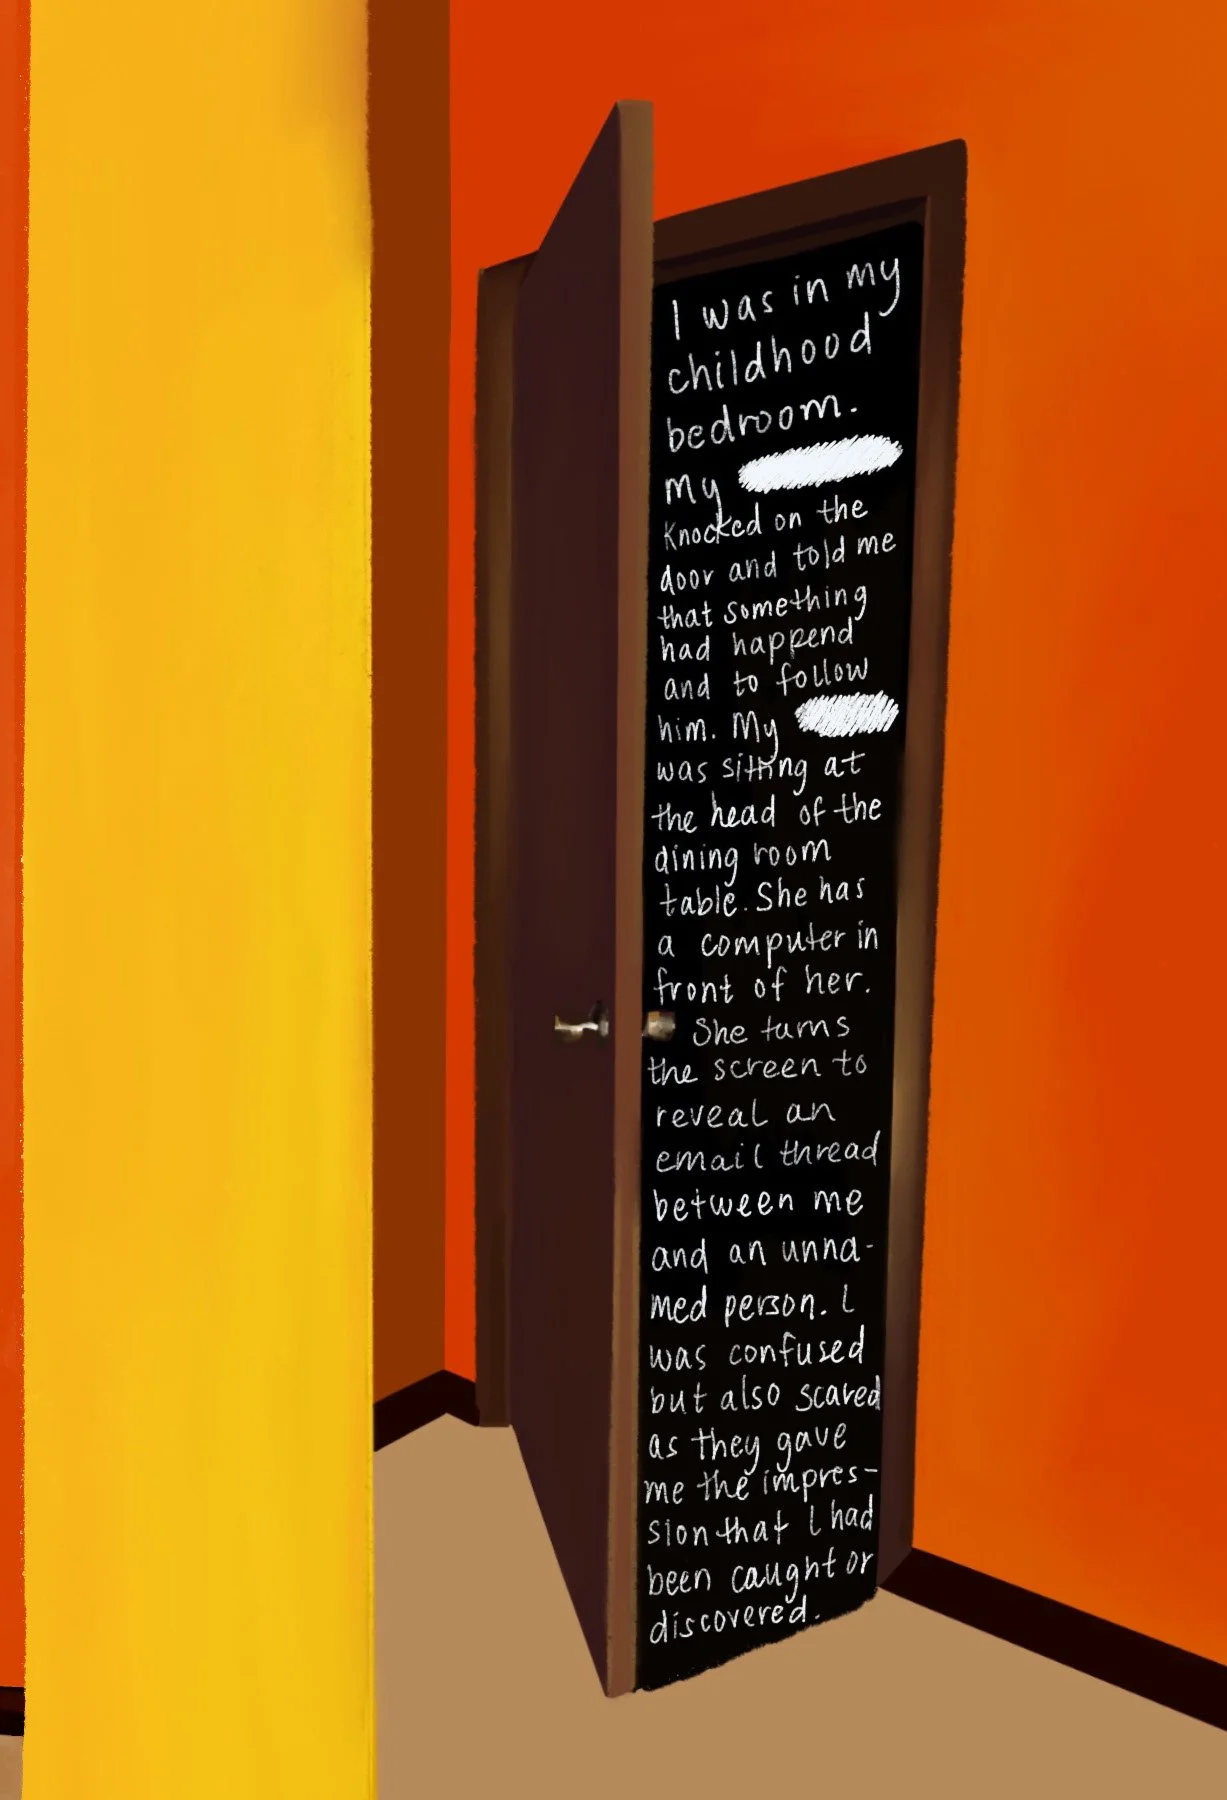 I was in my
childhood
bedroom.
My
knocked on the
door and told me
that something
had happend
and to follow
him. My
was sitting at
the head of the
dining room
table. She has
a computer in
front of her.
She turns
the screen to
reveal an
email thread
between me
and an unna-
med person. I
was confused
but also scared
as they gave
me the impres-
sion that I had
been caught or
discovered.